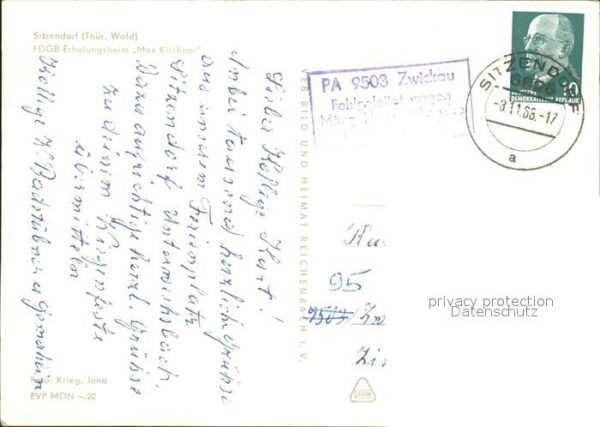 Sitzendorf (Thür. Wald)
FDGB-Erholungsheim „Max Kirchner"
Lieber Kollege Kurt!
Anbei tausend herzliche Grüße
aus unserem Ferienplatz
Sitzendorf Unterweißbach.
Dazu aufrichtige herzl. Grüße
zu deinem
übermitteln
Kollege K. Badstübner u Gemahlin
Foto: Krieg, Jena
EVP MDN –,20
VEB BILD UND HEIMAT REICHENBACH I. V.
PA 9503 Zwickau
Fehlgeleitet wegen
SITZENDORF
-8.11.66.-17
a
10
DEMOKRATISCHE REPUBLIK
95
privacy protection
Datenschutz